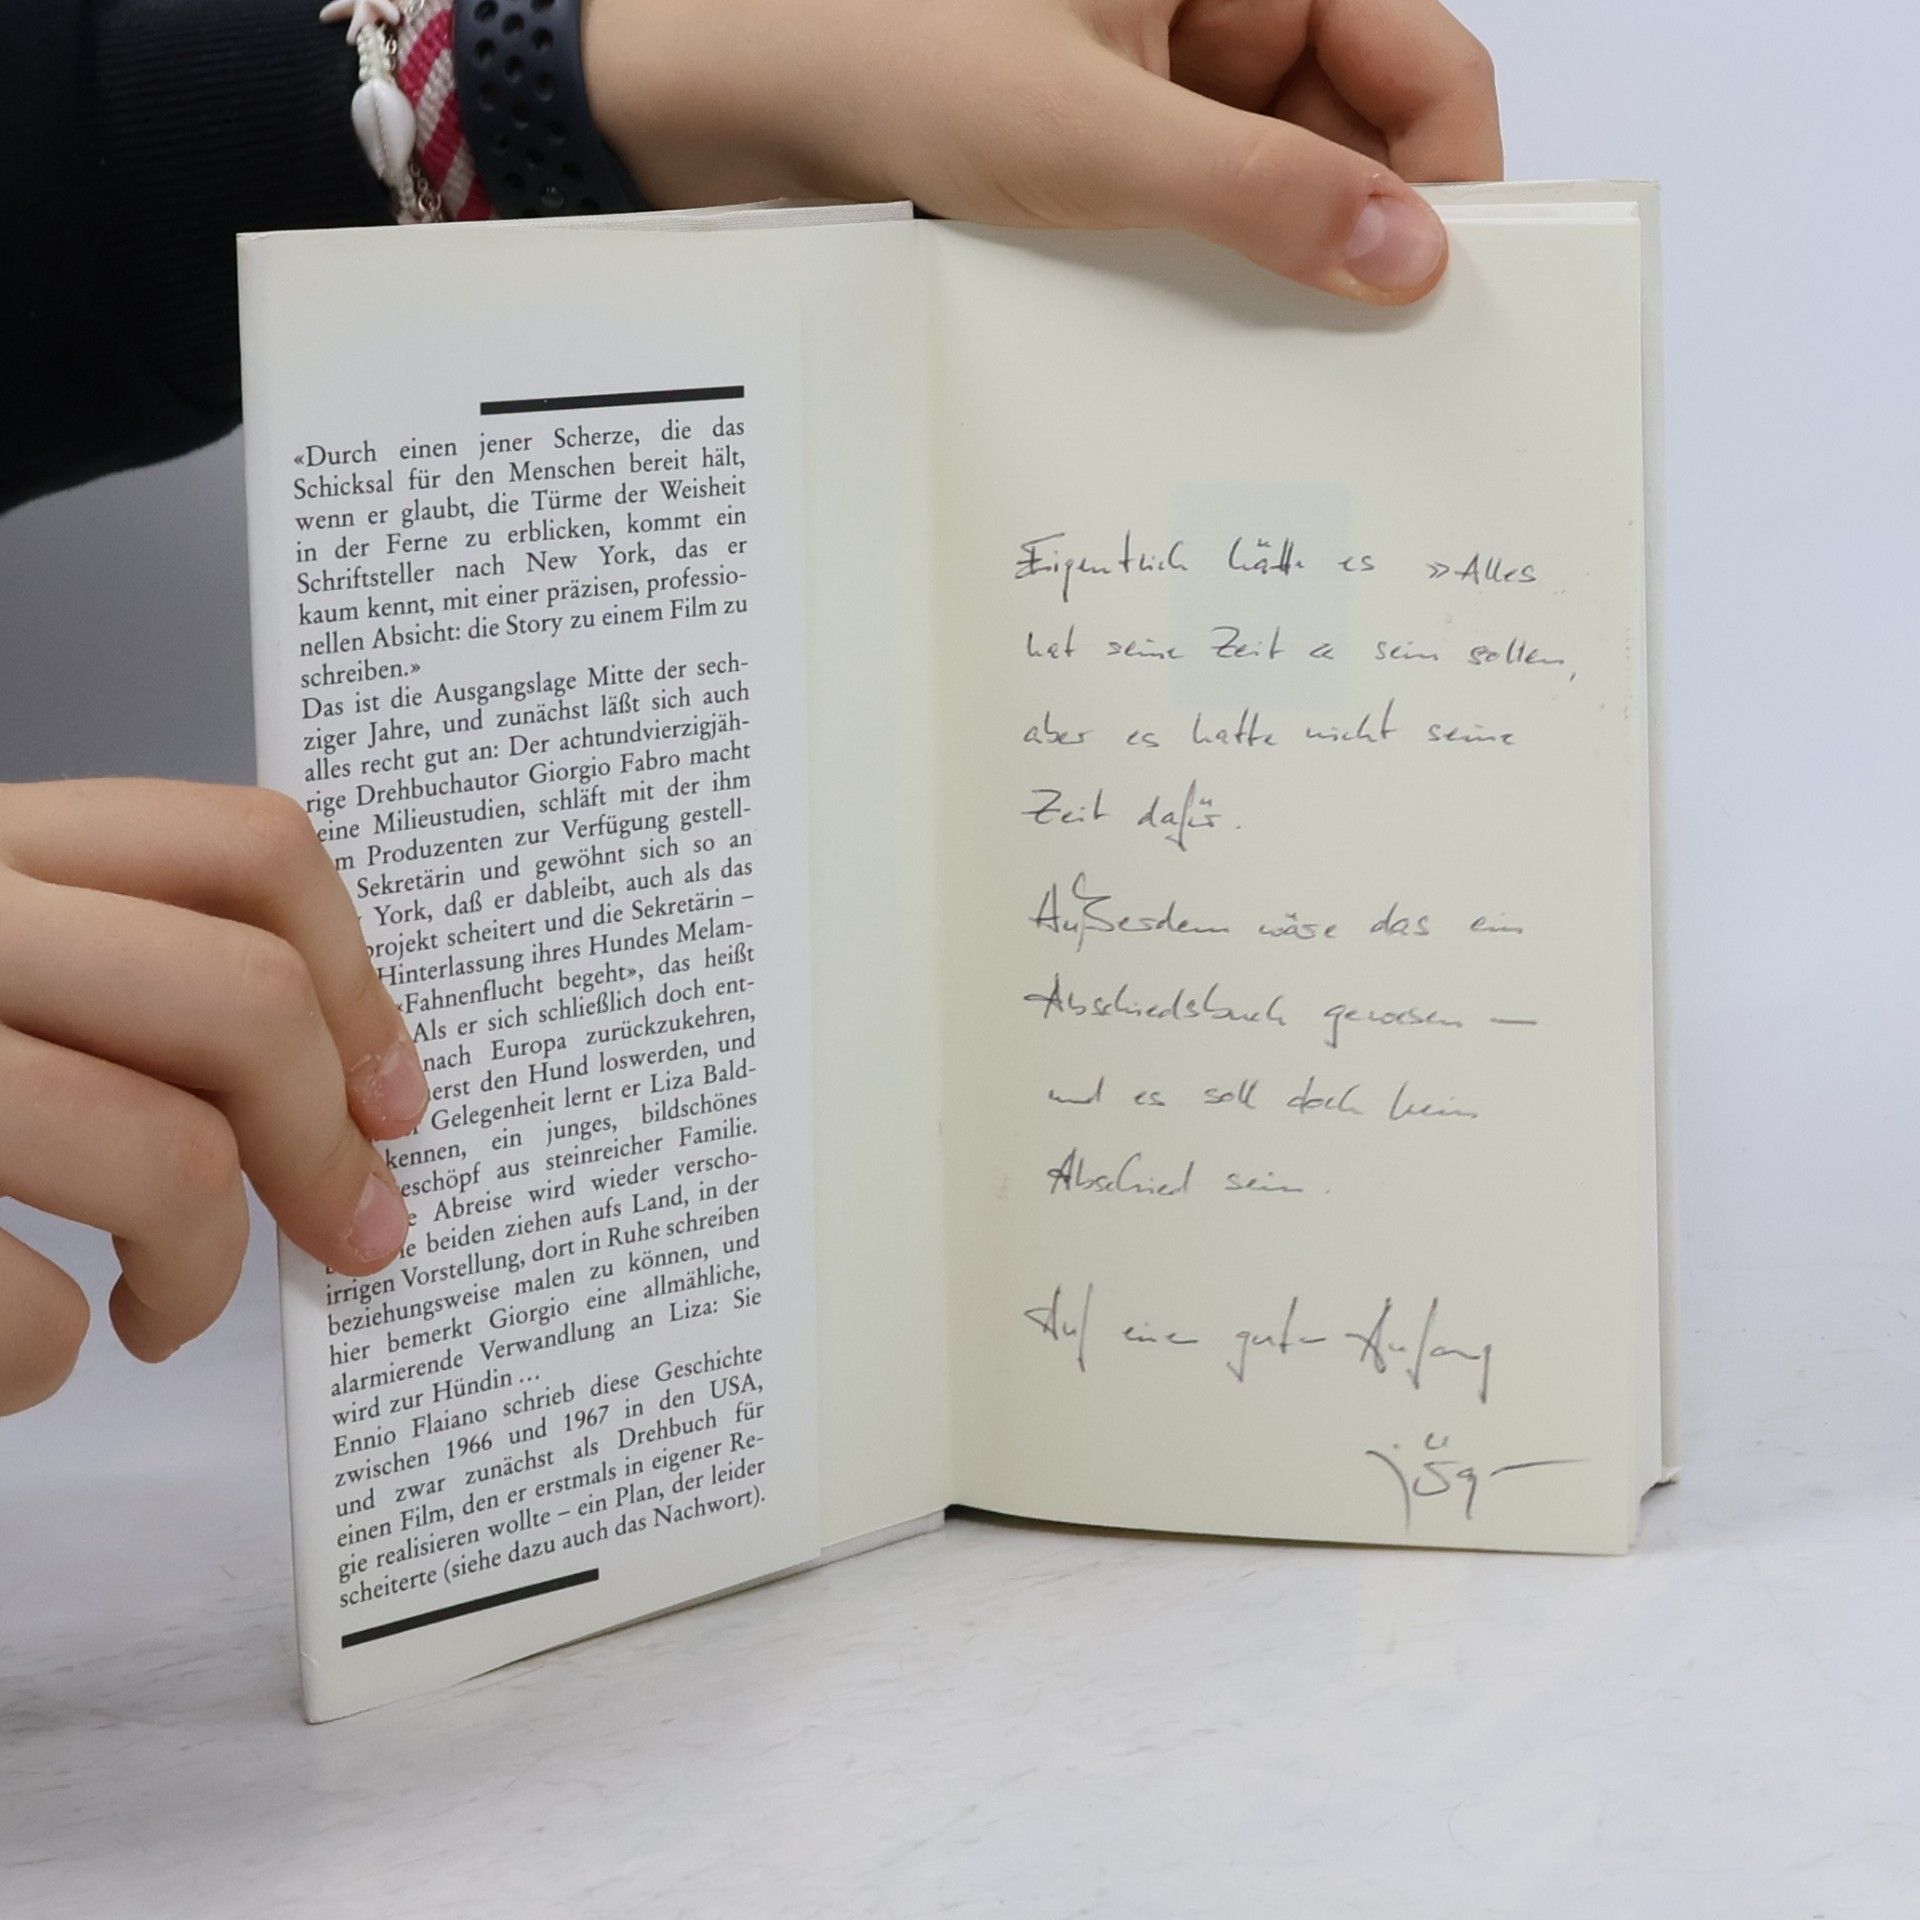 «Durch einen jener Scherze, die das
Schicksal für den Menschen bereit hält,
wenn er glaubt, die Türme der Weisheit
in der Ferne zu erblicken, kommt ein
Schriftsteller nach New York, das er
kaum kennt, mit einer präzisen, professio-
nellen Absicht: die Story zu einem Film zu
schreiben.»
Das ist die Ausgangslage Mitte der sech-
ziger Jahre, und zunächst läßt sich auch
alles recht gut an: Der achtundvierzigjäh-
rige Drehbuchautor Giorgio Fabro macht
eine Milieustudien, schläft mit der ihm
m Produzenten zur Verfügung gestell-
Sekretärin und gewöhnt sich so an
York, daß er dableibt, auch als das
projekt scheitert und die Sekretärin –
Hinterlassung ihres Hundes Melam-
«Fahnenflucht begeht», das heißt
Als er sich schließlich doch ent-
nach Europa zurückzukehren,
erst den Hund loswerden, und
Gelegenheit lernt er Liza Bald-
kennen, ein junges, bildschönes
eschöpf aus steinreicher Familie.
e Abreise wird wieder verscho-
ie beiden ziehen aufs Land, in der
irrigen Vorstellung, dort in Ruhe schreiben
beziehungsweise malen zu können, und
hier bemerkt Giorgio eine allmähliche,
alarmierende Verwandlung an Liza: Sie
wird zur Hündin ...
Ennio Flaiano schrieb diese Geschichte
zwischen 1966 und 1967 in den USA,
und zwar zunächst als Drehbuch für
einen Film, den er erstmals in eigener Re-
gie realisieren wollte – ein Plan, der leider
scheiterte (siehe dazu auch das Nachwort).
Eigentlich hätte es »Alles
hat seine Zeit« sein sollen,
aber es hatte nicht seine
Zeit dafür.
Außerdem wäre das ein
Abschiedsbuch gewesen —
und es soll doch kein
Abschied sein.
Auf einen guten Anfang
jörg